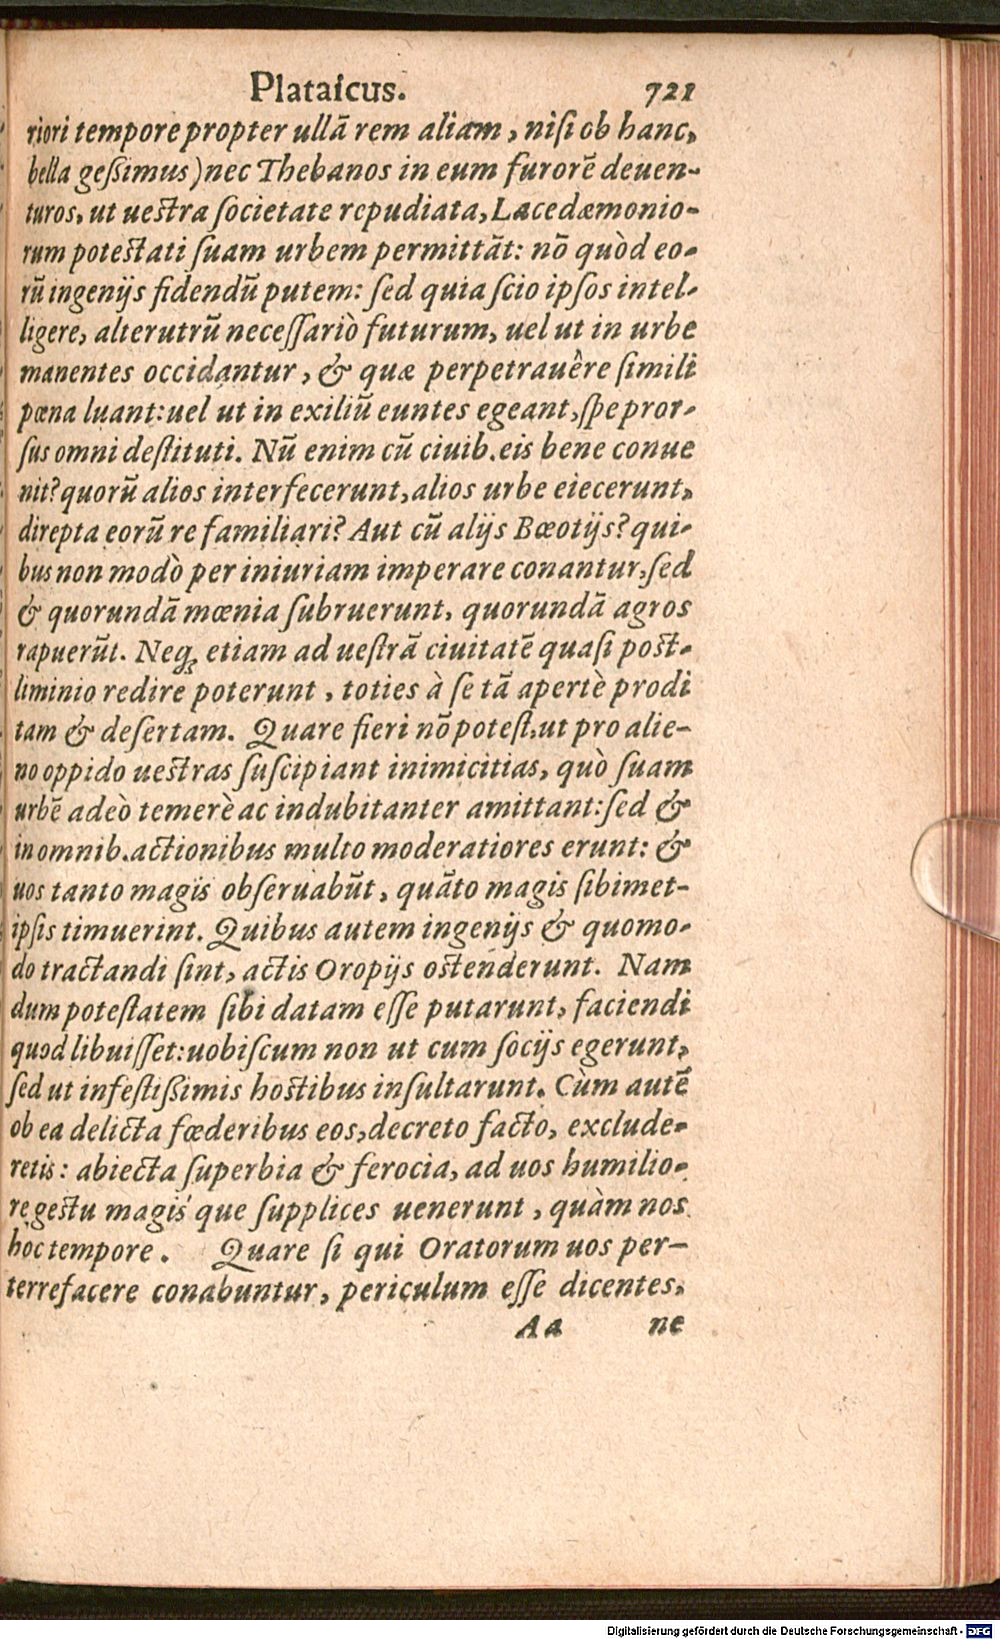 Plataicus. 721
riori tempore propter ullā rem aliam, niſi ob hanc,
bella geſsimus) nec Thebanos in eum furorē deuen-
turos, ut ueſtra ſocietate repudiata, Lacedæmonio-
rum poteſtati ſuam urbem permittāt: nō quòd eo-
rū ingenijs fidendū putem: ſed quia ſcio ipſos intel-
ligere, alterutrū neceſſariò futurum, uel ut in urbe
manentes occidantur, & quæ perpetrauêre ſimili
pœna luant: uel ut in exiliū euntes egeant, ſpe pror-
ſus omni deſtituti. Nū enim cū ciuib. eis bene conue
nit? quorū alios interfecerunt, alios urbe eiecerunt,
direpta eorū re familiari? Aut cū alijs Bœotijs? qui-
bus non modò per iniuriam imperare conantur, ſed
& quorundā mœnia ſubruerunt, quorundā agros
rapuerūt. Neq; etiam ad ueſtrā ciuitatē quaſi poſt-
liminio redire poterunt, toties à ſe tā apertè prodi
tam & deſertam. Quare fieri nō poteſt, ut pro alie-
no oppido ueſtras ſuſcipiant inimicitias, quò ſuam
urbē adeò temerè ac indubitanter amittant: ſed &
in omnib. actionibus multo moderatiores erunt: &
uos tanto magis obſeruabūt, quāto magis ſibimet-
ipſis timuerint. Quibus autem ingenijs & quomo-
do tractandi ſint, actis Oropijs oſtenderunt. Nam
dum poteſtatem ſibi datam eſſe putarunt, faciendi
quod libuiſſet: uobiſcum non ut cum ſocijs egerunt,
ſed ut infeſtiſsimis hoſtibus inſultarunt. Cùm autē
ob ea delicta fœderibus eos, decreto facto, exclude-
retis: abiecta ſuperbia & ferocia, ad uos humilio-
re geſtu magis que ſupplices uenerunt, quàm nos
hoc tempore. Quare ſi qui Oratorum uos per-
terrefacere conabuntur, periculum eſſe dicentes,
Aa ne
Digitalisierung gefördert durch die Deutsche Forschungsgemeinschaft - DFG